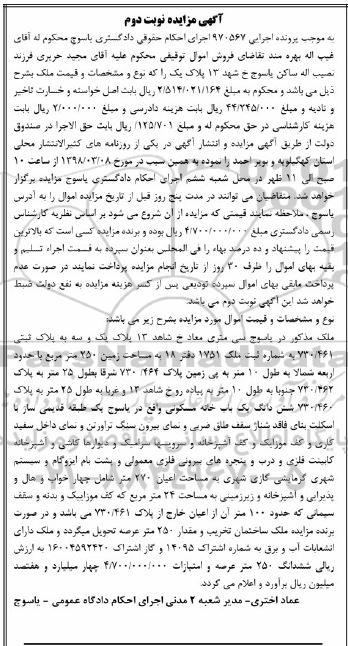 آگهی مزایده نوبت دوم
به موجب پرونده اجرایی ۹۷۰۵۶۷ اجرای احکام حقوقی دادگستری یاسوج محکوم له آقای
غیب اله بهره مند تقاضای فروش اموال توقیفی محکوم علیه آقای مجید حریری فرزند
نصیب اله ساکن یاسوج خ شهد ۱۳ پلاک یک را که نوع و مشخصات و قیمت ملک بشرح
ذیل می باشد و محکوم به مبلغ ۲/۵۱۴/۰۲۱/۱۶۴ ریال بابت اصل خواسته و خسارت تاخیر
و تادیه و مبلغ ۴۴/۲۴۵/۰۰۰ ریال بابت هزینه دادرسی و مبلغ ۲/۰۰۰/۰۰۰ ریال بابت
هزینه کارشناسی در حق محکوم له و مبلغ ۱۲۵/۷۰۱ ریال بابت حق الاجرا در صندوق
دولت از طریق آگهی مزایده و انتشار آگهی در یکی از روزنامه های کثیرالانتشار محلی
استان کهگیلویه و بویر احمد را نموده به همین سبب در مورخ ۱۳۹۸/۰۳/۰۸ از ساعت ۱۰
صبح الی ۱۱ ظهر در محل شعبه ششم اجرای احکام دادگستری یاسوج مزایده برگزار
خواهد شد. متقاضیان می توانند در مدت پنج روز قبل از تاریخ مزایده اموال را به آدرس
یاسوج ، ملاحظه نمایند قیمتی که مزایده از آن شروع می شود بر اساس نظریه کارشناس
رسمی دادگستری مبلغ ۴/۷۰۰/۰۰۰/۰۰۰ ریال بوده و برنده مزایده کسی است که بالاترین
قیمت را پیشنهاد و ده درصد بهاء را فی المجلس بعنوان سپرده به قسمت اجراء تسلیم و
بقیه بهای اموال را ظرف ۳۰ روز از تاریخ انجام مزایده پرداخت نمایند در صورت عدم
پرداخت مابقی بهای اموال سپرده تودیعی پس از کسر هزینه مزایده به نفع دولت ضبط
خواهد شد این آگهی نوبت دوم می باشد.
نوع و مشخصات و قیمت اموال مورد مزایده بشرح زیر می باشد:
ملک مذکور در یاسوج سی متری معاد خ شاهد ۱۳ پلاک یک و سه به پلاک ثبتی
۷۳۰/۴۶۱ به شماره ثبت ملک ۱۷۵۱ دفتر ۱۸ به مساحت زمین ۲۵۰ متر مربع با حدود
اربعه شمالا به طول ۱۰ متر به پی زمین پلاک ۷۳۰/۴۶۴ شرقا بطول ۲۵ متر به پلاک
۷۳۰/۴۶۲ جنوبا به طول ۱۰ متر به پیاده رو خ شاهد ۱۳ و غربا به طول ۲۵ متر به پلاک
۷۳۰/۴۶۰ شش دانگ یک باب خانه مسکونی واقع در یاسوج یک طبقه قدیمی ساز با
اسکلت بنای فاقد شناژ سقف طاق ضربی و نمای بیرون سنگ تراورتن و نمای داخل سفید
کاری و کف موزاییک و کف آشپزخانه و سرویسها سرامیک و دیوارها کاشی و آشپزخانه
کابینت فلزی و درب و پنجره های بیرونی فلزی معمولی و پشت بام ایزوگام و سیستم
شهری گرمایشی گازی شهری به مساحت اعیان ۲۷۰ متر شامل چهار خواب و هال و
پذیرایی و آشپزخانه و زیرزمینی به مساحت ۲۴ متر مربع که کف موزاییک و بدنه و سقف
سیمانی که حدود ۱۰۰ متر آن از اعیان خارج از پلاک ۷۳۰/۴۶۱ می باشد و در صورت
برنده مزایده ملک ساختمان تخریب و مقدار ۲۵۰ متر عرصه تحویل میگردد و ملک دارای
انشعابات آب و برق به شماره اشتراک ۱۴۰۹۵ و گاز اشتراک ۱۶۰۰۴۵۹۲۴۲۰ به ارزش
ریالی ششدانگ ۲۵۰ متر عرصه و امتیازات ۴/۷۰۰/۰۰۰/۰۰۰ چهار میلیارد و هفتصد
میلیون ریال برآورد و اعلام می گردد.
عماد اختری- مدیر شعبه ۲ مدنی اجرای احکام دادگاه عمومی - یاسوج